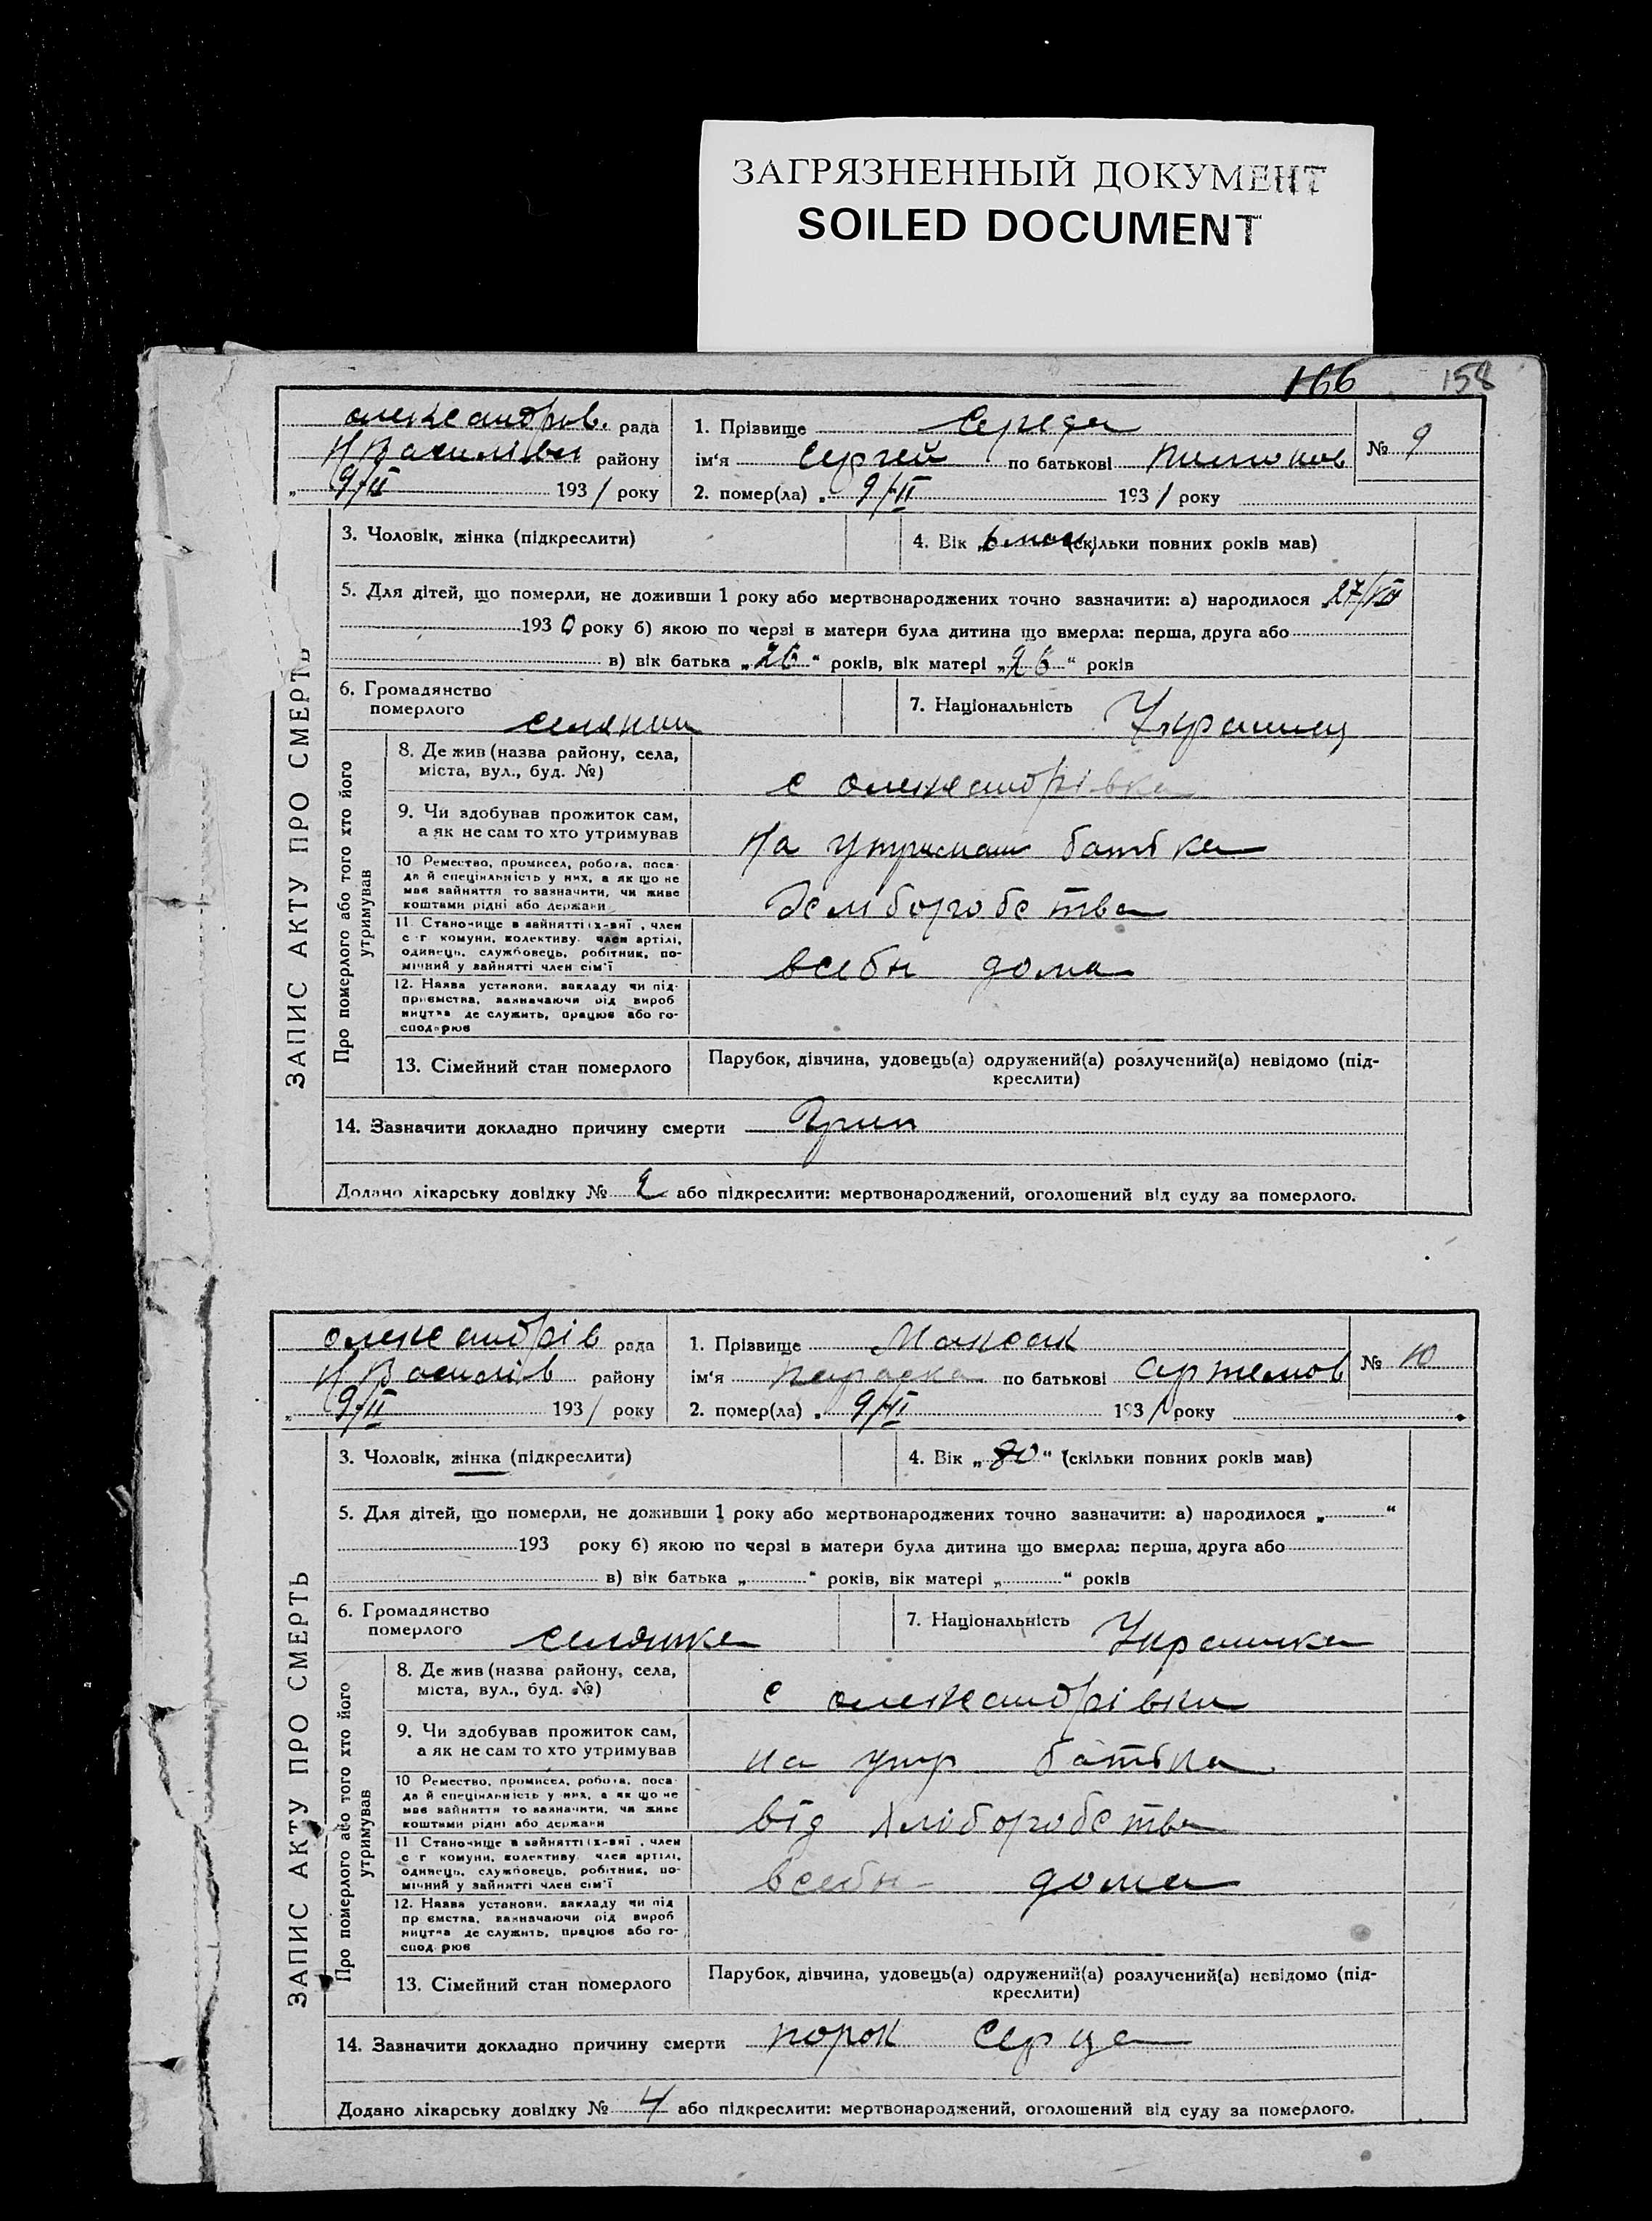 ЗАГРЯЗНЕННЫЙ ДОКУМЕНТ
SOILED DOCUMENT
166 158
олександрів. рада
Н Василівк району
„ 9/II 1931 року
1. Прізвище Середа
ім‘я Сергей по батькові
2. помер(ла) „ 9/II 1931 року
№ 9
ЗАПИС АКТУ ПРО СМЕРТЬ
3. Чоловік, жінка (підкреслити)
4. Вік „6 мес. (скільки повних років мав)
5. Для дітей, що померли, не доживши 1 року або мертвонароджених точно зазначити: а) народилося „27/VIII
1930 року б) якою по черзі в матери була дитина що вмерла: перша, друга або
в) вік батька „26“ років, вік матері „26“ років
6. Громадянство
померлого селянин
7. Національність Украинец
Про померлого або того хто його
утримував
8. Де жив (назва району, села,
міста, вул., буд. №)
с олександрівка
9. Чи здобував прожиток сам,
а як не сам то хто утримував
На утриман батька
10 Ремество, промисел, робота, поса-
да й спеціяльність у них, а як що не
мав зайняття то зазначити, чи живе
коштами рідні або держави
хліборобства
11 Становище в зайнятті (х-вяї , член
с г комуни, колективу член артілі,
одинець, службовець, робітник, по-
мічний у зайнятті член сім‘ї
всебя дома
12. Назва установи, закладу чи під-
приємства, зазначаючи рід вироб
ництва де служить, працює або го-
сподарює
13. Сімейний стан померлого
Парубок, дівчина, удовець(а) одружений(а) розлучений(а) невідомо (під-
креслити)
14. Зазначити докладно причину смерти Грип
Додано лікарську довідку № 2 або підкреслити: мертвонароджений, оголошений від суду за померлого.
олександрів рада
Н Василів району
„ 9/II 1931 року
1. Прізвище
ім‘я параска по батькові Артемов
2. помер(ла) „ 9/II 1931 року
№ 10
ЗАПИС АКТУ ПРО СМЕРТЬ
3. Чоловік, жінка (підкреслити)
4. Вік „80“ (скільки повних років мав)
5. Для дітей, що померли, не доживши 1 року або мертвонароджених точно зазначити: а) народилося „ “
193 року б) якою по черзі в матери була дитина що вмерла: перша, друга або
в) вік батька „ “ років, вік матері „ “ років
6. Громадянство
померлого селянка
7. Національність Украинка
Про померлого або того хто його
утримував
8. Де жив (назва району, села,
міста, вул., буд. №)
с олександрівки
9. Чи здобував прожиток сам,
а як не сам то хто утримував
на утр батька
10 Ремество, промисел, робота, поса-
да й спеціяльність у них, а як що не
мав зайняття то зазначити, чи живе
коштами рідні або держави
від хліборобства
11 Становище в зайнятті (х-вяї , член
с г комуни, колективу член артілі,
одинець, службовець, робітник, по-
мічний у зайнятті член сім‘ї
всебя дома
12. Назва установи, закладу чи під
пр ємства, зазначаючи рід вироб
ництва де служить, працює або го-
спод рює
13. Сімейний стан померлого
Парубок, дівчина, удовець(а) одружений(а) розлучений(а) невідомо (під-
креслити)
14. Зазначити докладно причину смерти порок серца
Додано лікарську довідку № 4 або підкреслити: мертвонароджений, оголошений від суду за померлого.